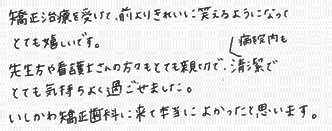 矯正治療を受けて、前よりきれいに笑えるようになって
とても嬉しいです。
病院内も
先生方や看護士さんの方々もとても親切で、清潔で
とても気持ちよく過ごせました。
いしかわ矯正歯科に来て本当によかったと思います。